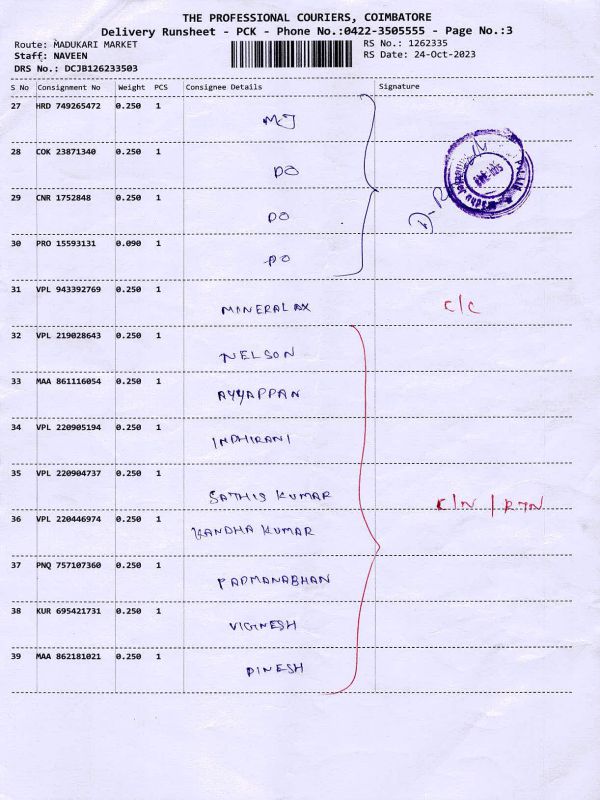 THE PROFESSIONAL COURIERS, COIMBATORE
Delivery Runsheet - PCK - Phone No.:0422-3505555 - Page No.:3
Route: MADUKARI MARKET RS No.: 1262335
Staff: NAVEEN RS Date: 24-Oct-2023
DRS No.: DCJB126233503
S No Consignment No Weight PCS Consignee Details Signature
27 HRD 749265472 0.250 1 MJ
28 COK 23871340 0.250 1 DO
29 CNR 1752848 0.250 1 DO
30 PRO 15593131 0.090 1 DO
31 VPL 943392769 0.250 1 MINERALAX C/C
32 VPL 219028643 0.250 1 NELSON
33 MAA 861116054 0.250 1 AYYAPPAN
34 VPL 220905194 0.250 1 INDHIRANI
35 VPL 220904737 0.250 1 SATHIS KUMAR C/N / RTN
36 VPL 220446974 0.250 1 KANDHA KUMAR
37 PNQ 757107360 0.250 1 PADMANABHAN
38 KUR 695421731 0.250 1 VIGNESH
39 MAA 862181021 0.250 1 DINESH